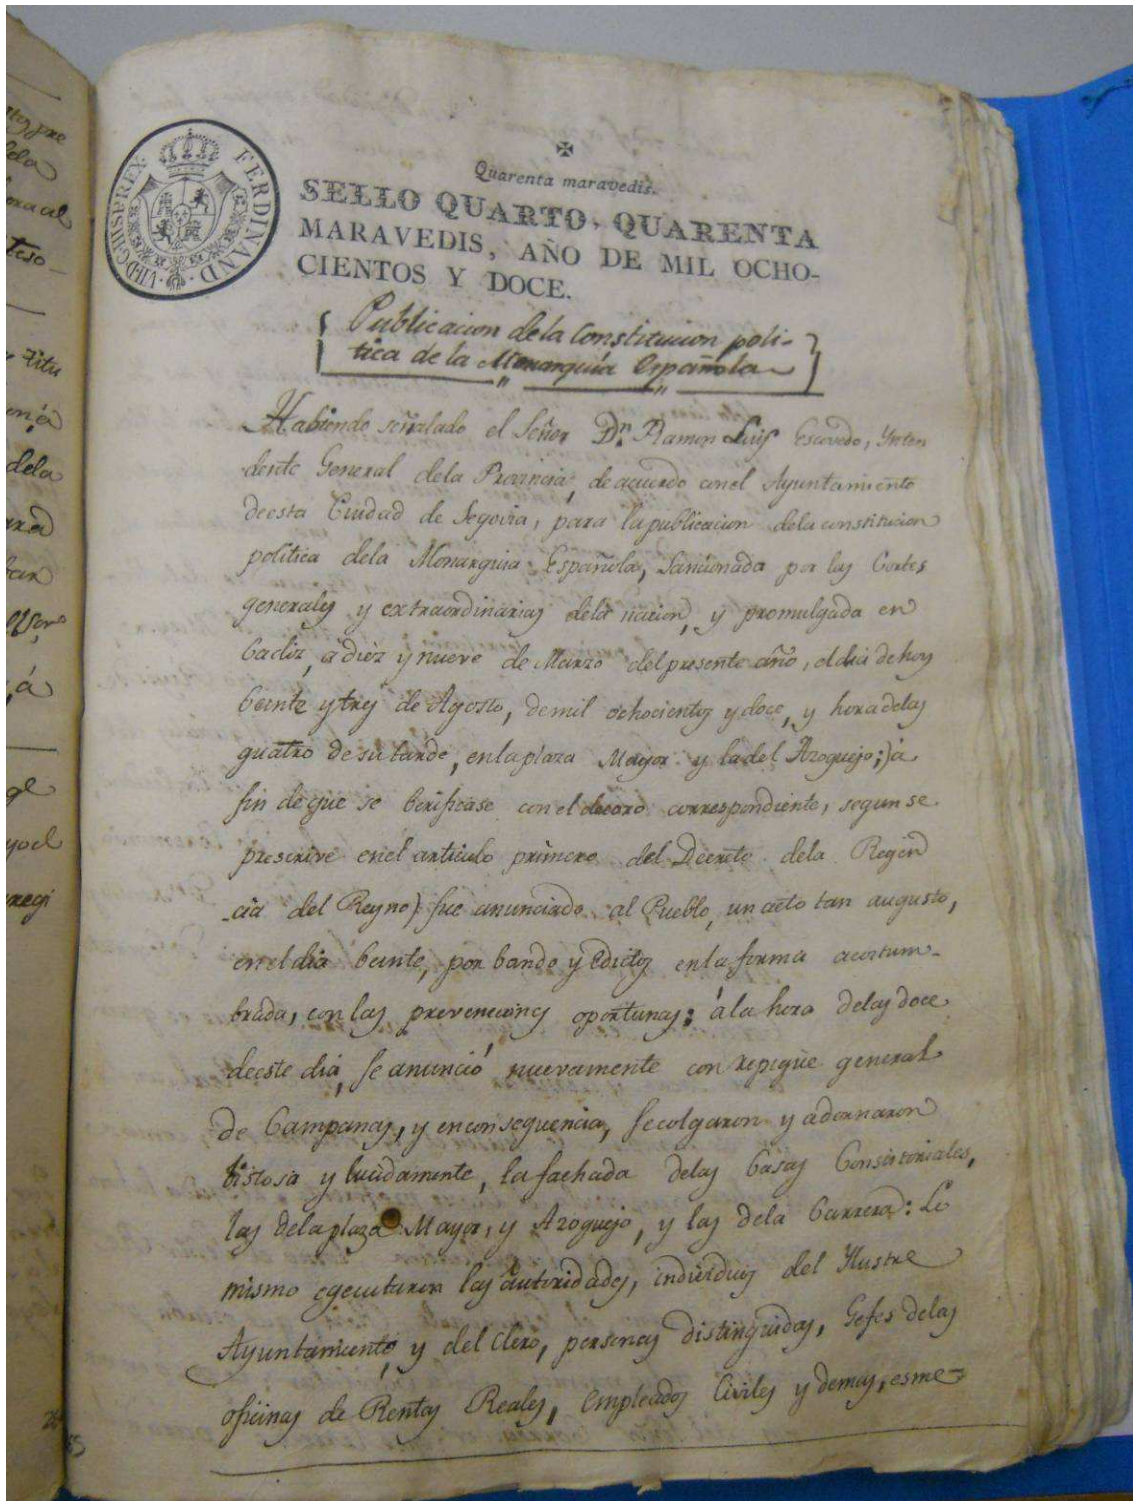 ✠
Quarenta maravedis.
SELLO QUARTO, QUARENTA
MARAVEDIS, AÑO DE MIL OCHO-
CIENTOS Y DOCE.
FERDINAND · VII · D · G · HISP · REX ·
Publicacion dela Constitucion poli-
tica de la Monarquía Española
Habiendo señalado el Señor Dn. Ramon Luis Escovedo, Ynten
dente General dela Provincia, de acuerdo conel Ayuntamiento
deesta Ciudad de Segovia, para la publicacion dela constitucion
politica dela Monarquia Española, Sancionada por las Cortes
generales y extraordinarias dela nacion, y promulgada en
Cadiz, a diez y nueve de Marzo del presente año, el dia de hoy
beinte y tres de Agosto, demil ochocientos y doce, y hora delas
quatro de su tarde, enla plaza Mayor y la del Azoguejo;) á
fin de que se berificase con el decoro correspondiente, segun se
prescrive enel articulo primero del Decreto dela Regen
cia del Reyno) fue anunciado al Pueblo, un acto tan augusto,
enel dia beinte, por bando y Edictos enla forma acostum-
brada, con las prevenciones oportunas; á la hora delas doce
deeste dia, se anunció nuevamente con repique general
de Campanas, y en consequencia, se colgaron y adornaron
bistosa y lucidamente, la fachada delas Casas Consistoriales,
las dela plaza Mayor, y Azoguejo, y las dela Carrera: Lo
mismo egecutaron las autoridades, individuos del Ylustre
Ayuntamiento, y del Clero, personas distinguidas, Gefes delas
oficinas de Rentas Reales, Empleados Civiles y demas, esme-